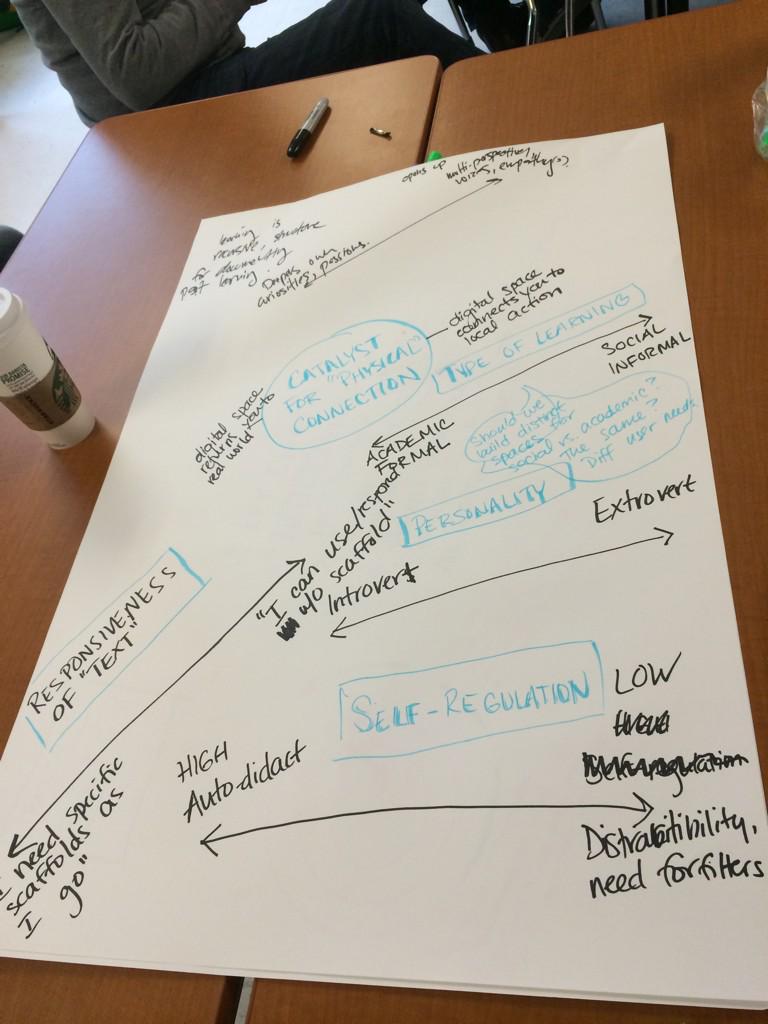 opens up multi-perspective,
voices, empathy?
learning is
recursive, structure
for documenting
past learning.
Deepens own
curiosities, passions.
digital space
connects you to
local action
CATALYST
FOR "PHYSICAL"
CONNECTION
TYPE OF LEARNING
SOCIAL
INFORMAL
digital space
returns you to
real world
ACADEMIC
FORMAL
Should we
build distinct
spaces for
social vs. academic?
The same?
Diff user needs
PERSONALITY
Extrovert
Introvert
"I can use/respond
w/o scaffold"
RESPONSIVENESS
OF "TEXT"
need specific
scaffolds as
I go"
SELF-REGULATION
LOW
HIGH
Auto-didact
Distractibility,
need for filters